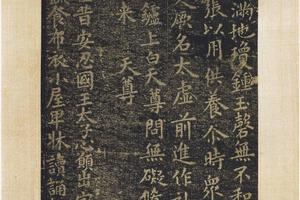 滿地瓊鍾玉磬無不和
張以用供養介時衆
願名太虛前進作礼
上白天尊問無礙
来 天尊
昔安忍國王太子心願出
布衣小屋單牀讀誦